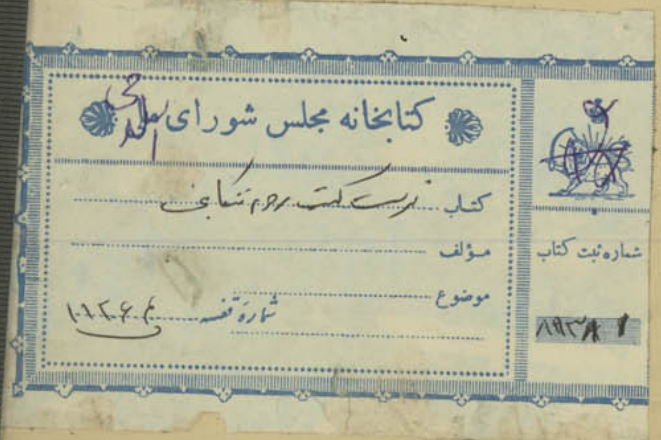 کتابخانه مجلس شورای اسلامی
کتاب فهرست کتب مرحوم تنکابنی
مؤلف
موضوع
شمارهٔ قفسه
شماره ثبت کتاب